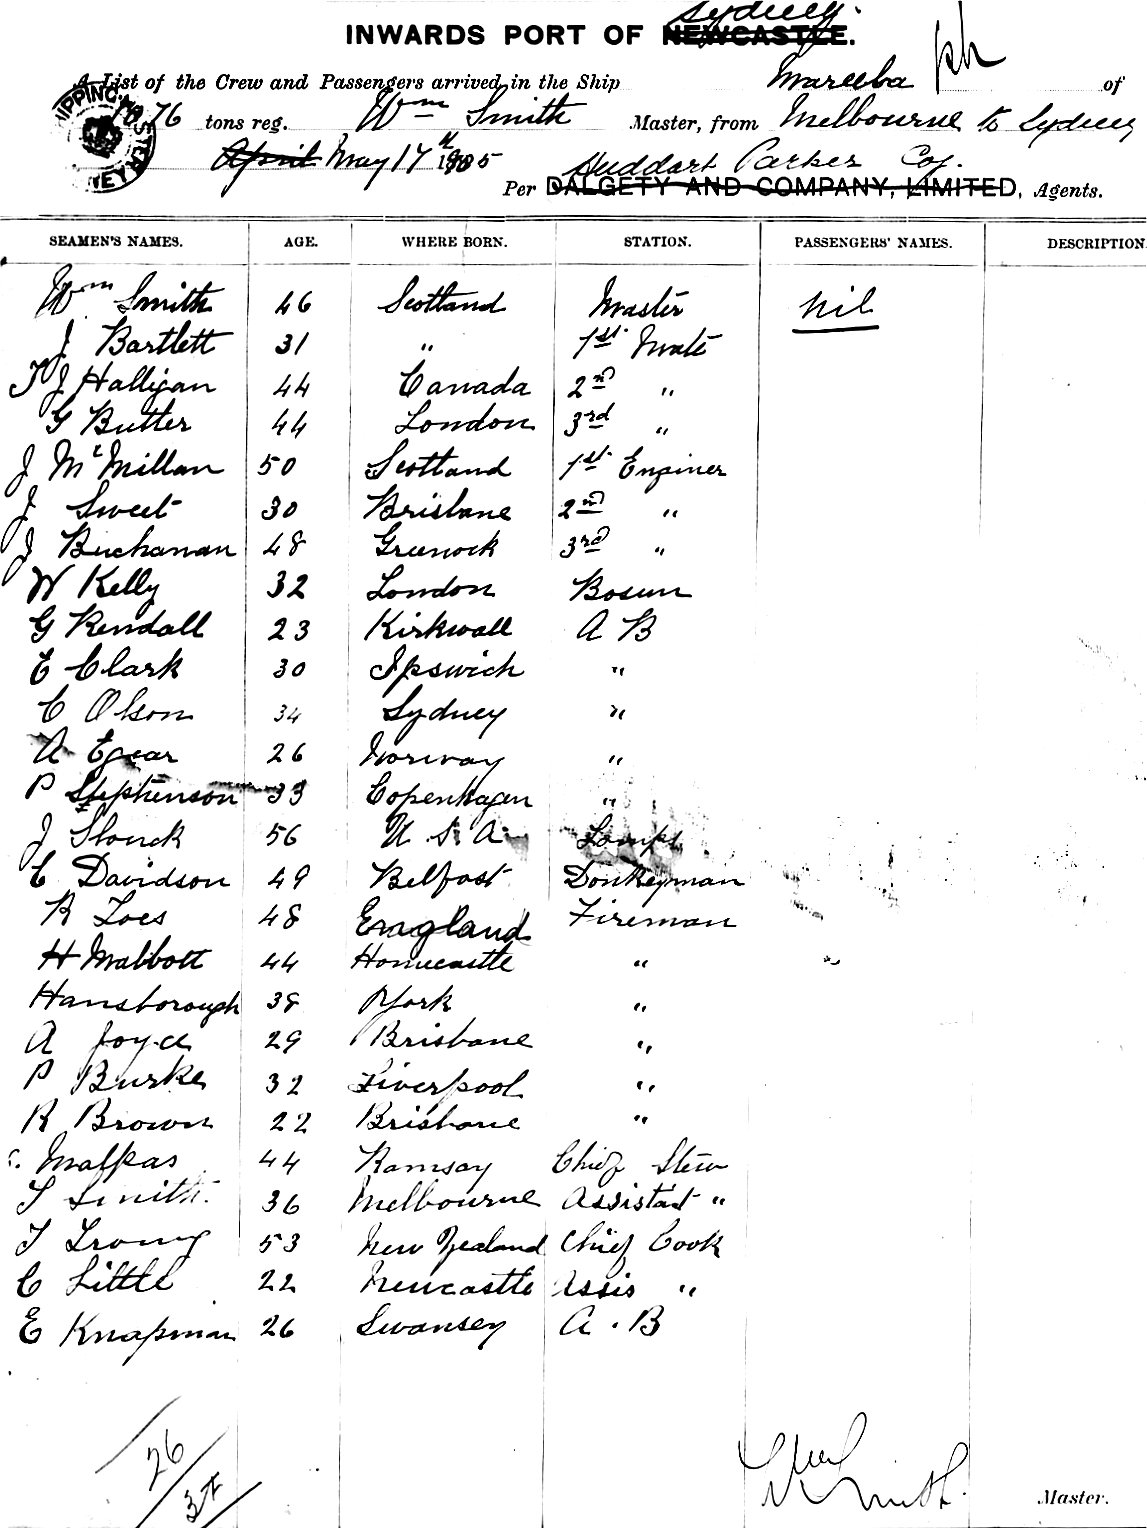 Sydney.
INWARDS PORT OF NEWCASTLE.
A List of the Crew and Passengers arrived in the Ship Mareeba of
1876 tons reg. Wm Smith Master, from Melbourne to Sydney
April May 17th 1905 Huddart Parker Coy.
Per DALGETY AND COMPANY, LIMITED, Agents.
SEAMEN'S NAMES. AGE. WHERE BORN. STATION. PASSENGERS' NAMES. DESCRIPTION
Wm Smith 46 Scotland Master Nil
J Bartlett 31 " 1st Mate
T J Halligan 44 Canada 2nd "
G Butter 44 London 3rd "
J McMillan 50 Scotland 1st Enginer
J Sweet 30 Brisbane 2nd "
J Buchanan 48 Greenock 3rd "
W Kelly 32 London Bosun
G Rendall 23 Kirkwall A B
E Clark 30 Ipswich "
C Olson 34 Sydney "
A Egear 26 Norway "
P Stephenson 33 Copenhagen "
J 56 U. S. A. Lamps
C Davidson 49 Belfast Donkeyman
R 48 England Fireman
H Mabbott 44 Horncastle "
Hansborough 38 York "
A Joyce 29 Brisbane "
P Burke 32 Liverpool "
R Brown 22 Brisbane "
Malpas 44 Ramsay Chief Stew
T Smith 36 Melbourne Assistat "
T 53 New Zealand Chief Cook
C Little 22 Newcastle Assis "
E Knapman 26 Swansey A. B
26
Wm Smith
Master.